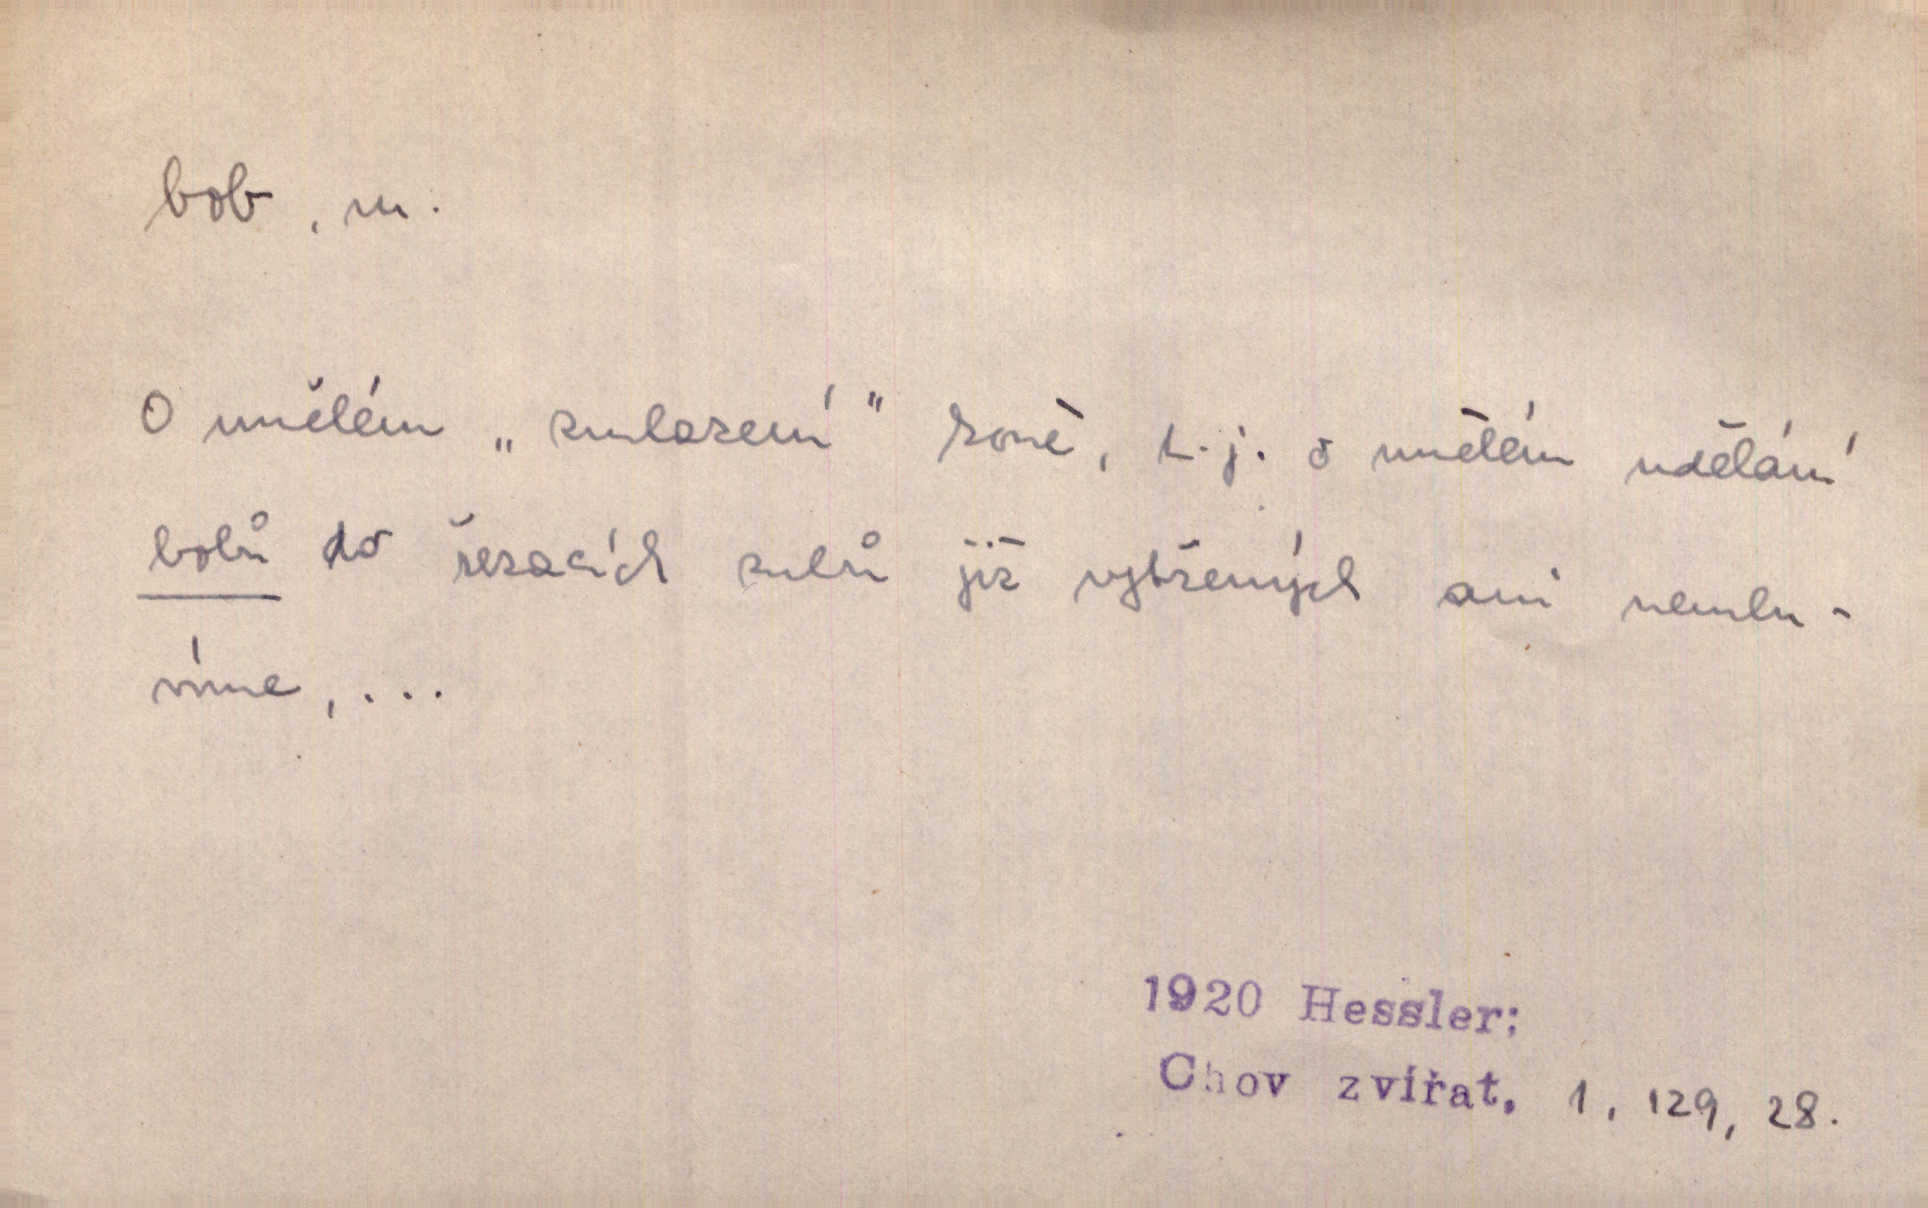 bob, m.
O umělém „zmlazení" koně, t. j. o umělém udělání
bobů do řezacích zubů již vytřených ani nemlu-
víme, ...
1920 Hessler:
Chov zvířat. 1, 129, 28.